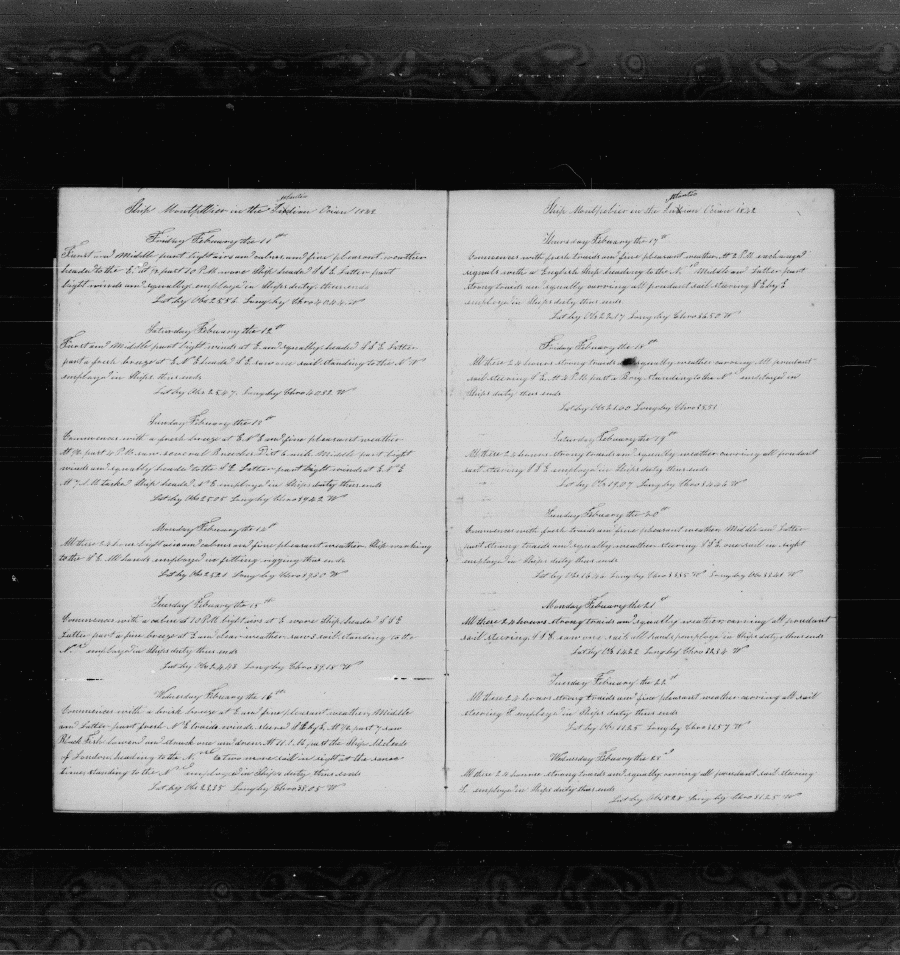 Atlantic
Ship Montpellier in the Indian Ocean 1842
Friday February the 11th
First and Middle part light airs and calms and fine pleasant weather
headed to the E. at ½ past 10 P.M. wore Ship headed S S E Latter part
light winds and squally employed in Ships duty thus ends
Lat by Obs 25 86 Long by Chro 40 44 W
Saturday February the 12th
First and Middle part light winds at E and squally headed S S E Latter
part a fresh breeze at E N E headed S E saw one sail standing to the N W
employed in Ships thus ends
Lat by Obs 25 47 Long by Chro 40 32 W
Sunday February the 13th
Commences with a fresh breeze at E N E and fine pleasant weather
At ½ past 4 P.M. saw several Middle part light
winds and squally headed to the S E Latter part light winds at E N E
At 7 A.M tacked Ship headed S E employed in Ships duty thus ends
Lat by Obs 25 05 Long by Chro 39 42 W
Monday February the 14th
All these 24 hours light airs and calms and fine pleasant weather Ship working
to the S E All hands employed in fitting rigging thus ends
Lat by Obs 25 21 Long by Chro 39 50 W
Tuesday February the 15th
Commences with a calm at 10 P.M. light airs at E wore Ship headed S S E
Latter part a fine breeze at E and clear weather saw a sail standing to the
N employed in Ships duty thus ends
Lat by Obs 24 43 Long by Chro 39 18 W
Wednesday February the 16th
Commences with a brisk breeze at E and fine pleasant weather Middle
and Latter part fresh N E trades winds steered S E by E At ½ past 7 saw
Black Fish lowered and struck one and drew At 11 A.M. past the Ship
of London heading to the N. two more sail in sight at the same
time standing to the N employed in Ships duty thus ends
Lat by Obs 23 35 Long by Chro 38 05 W
Atlantic
Ship Montpellier in the Indian Ocean 1842
Thursday February the 17th
Commences with fresh trades and fine pleasant weather At 2 P.M. exchanged
signals with a English Ship heading to the N. Middle and Latter part
strong trades and squally carrying all prudent sail steering S E by E
employed in Ships duty thus ends
Lat by Obs 22 17 Long by Chro 36 50 W
Friday February the 18th
All these 24 hours strong trades and squally weather carrying All prudent
sail steering S E. At 4 P.M. past a Brig standing to the N employed in
Ships duty thus ends
Lat by Obs 21 00 Long by Chro
Saturday February the 19th
All these 24 hours strong trades and squally weather carrying all prudent
sail steering S S E employed in Ships duty thus ends
Lat by Obs 19 07 Long by Chro 34 44 W
Sunday February the 20th
Commences with fresh trades and fine pleasant weather Middle and Latter
part strong trades and squally weather steering S S E one sail in sight
employed in Ships duty thus ends
Lat by Obs 16 44 Long by Chro W Long by Obs W
Monday February the 21st
All these 24 hours strong trades and squally weather carrying all prudent
sail steering S S E saw one sail all hands employed in Ships duty thus ends
Lat by Obs 14 22 Long by Chro W
Tuesday February the 22d
All these 24 hours strong trades and fine pleasant weather carrying all sail
steering S employed in Ships duty thus ends
Lat by Obs 11 25 Long by Chro W
Wednesday February the 23d
All these 24 hours strong trades and squally carrying all prudent sail steering
S. employed in Ships duty thus ends
Lat by Obs 8 28 Long by Chro W